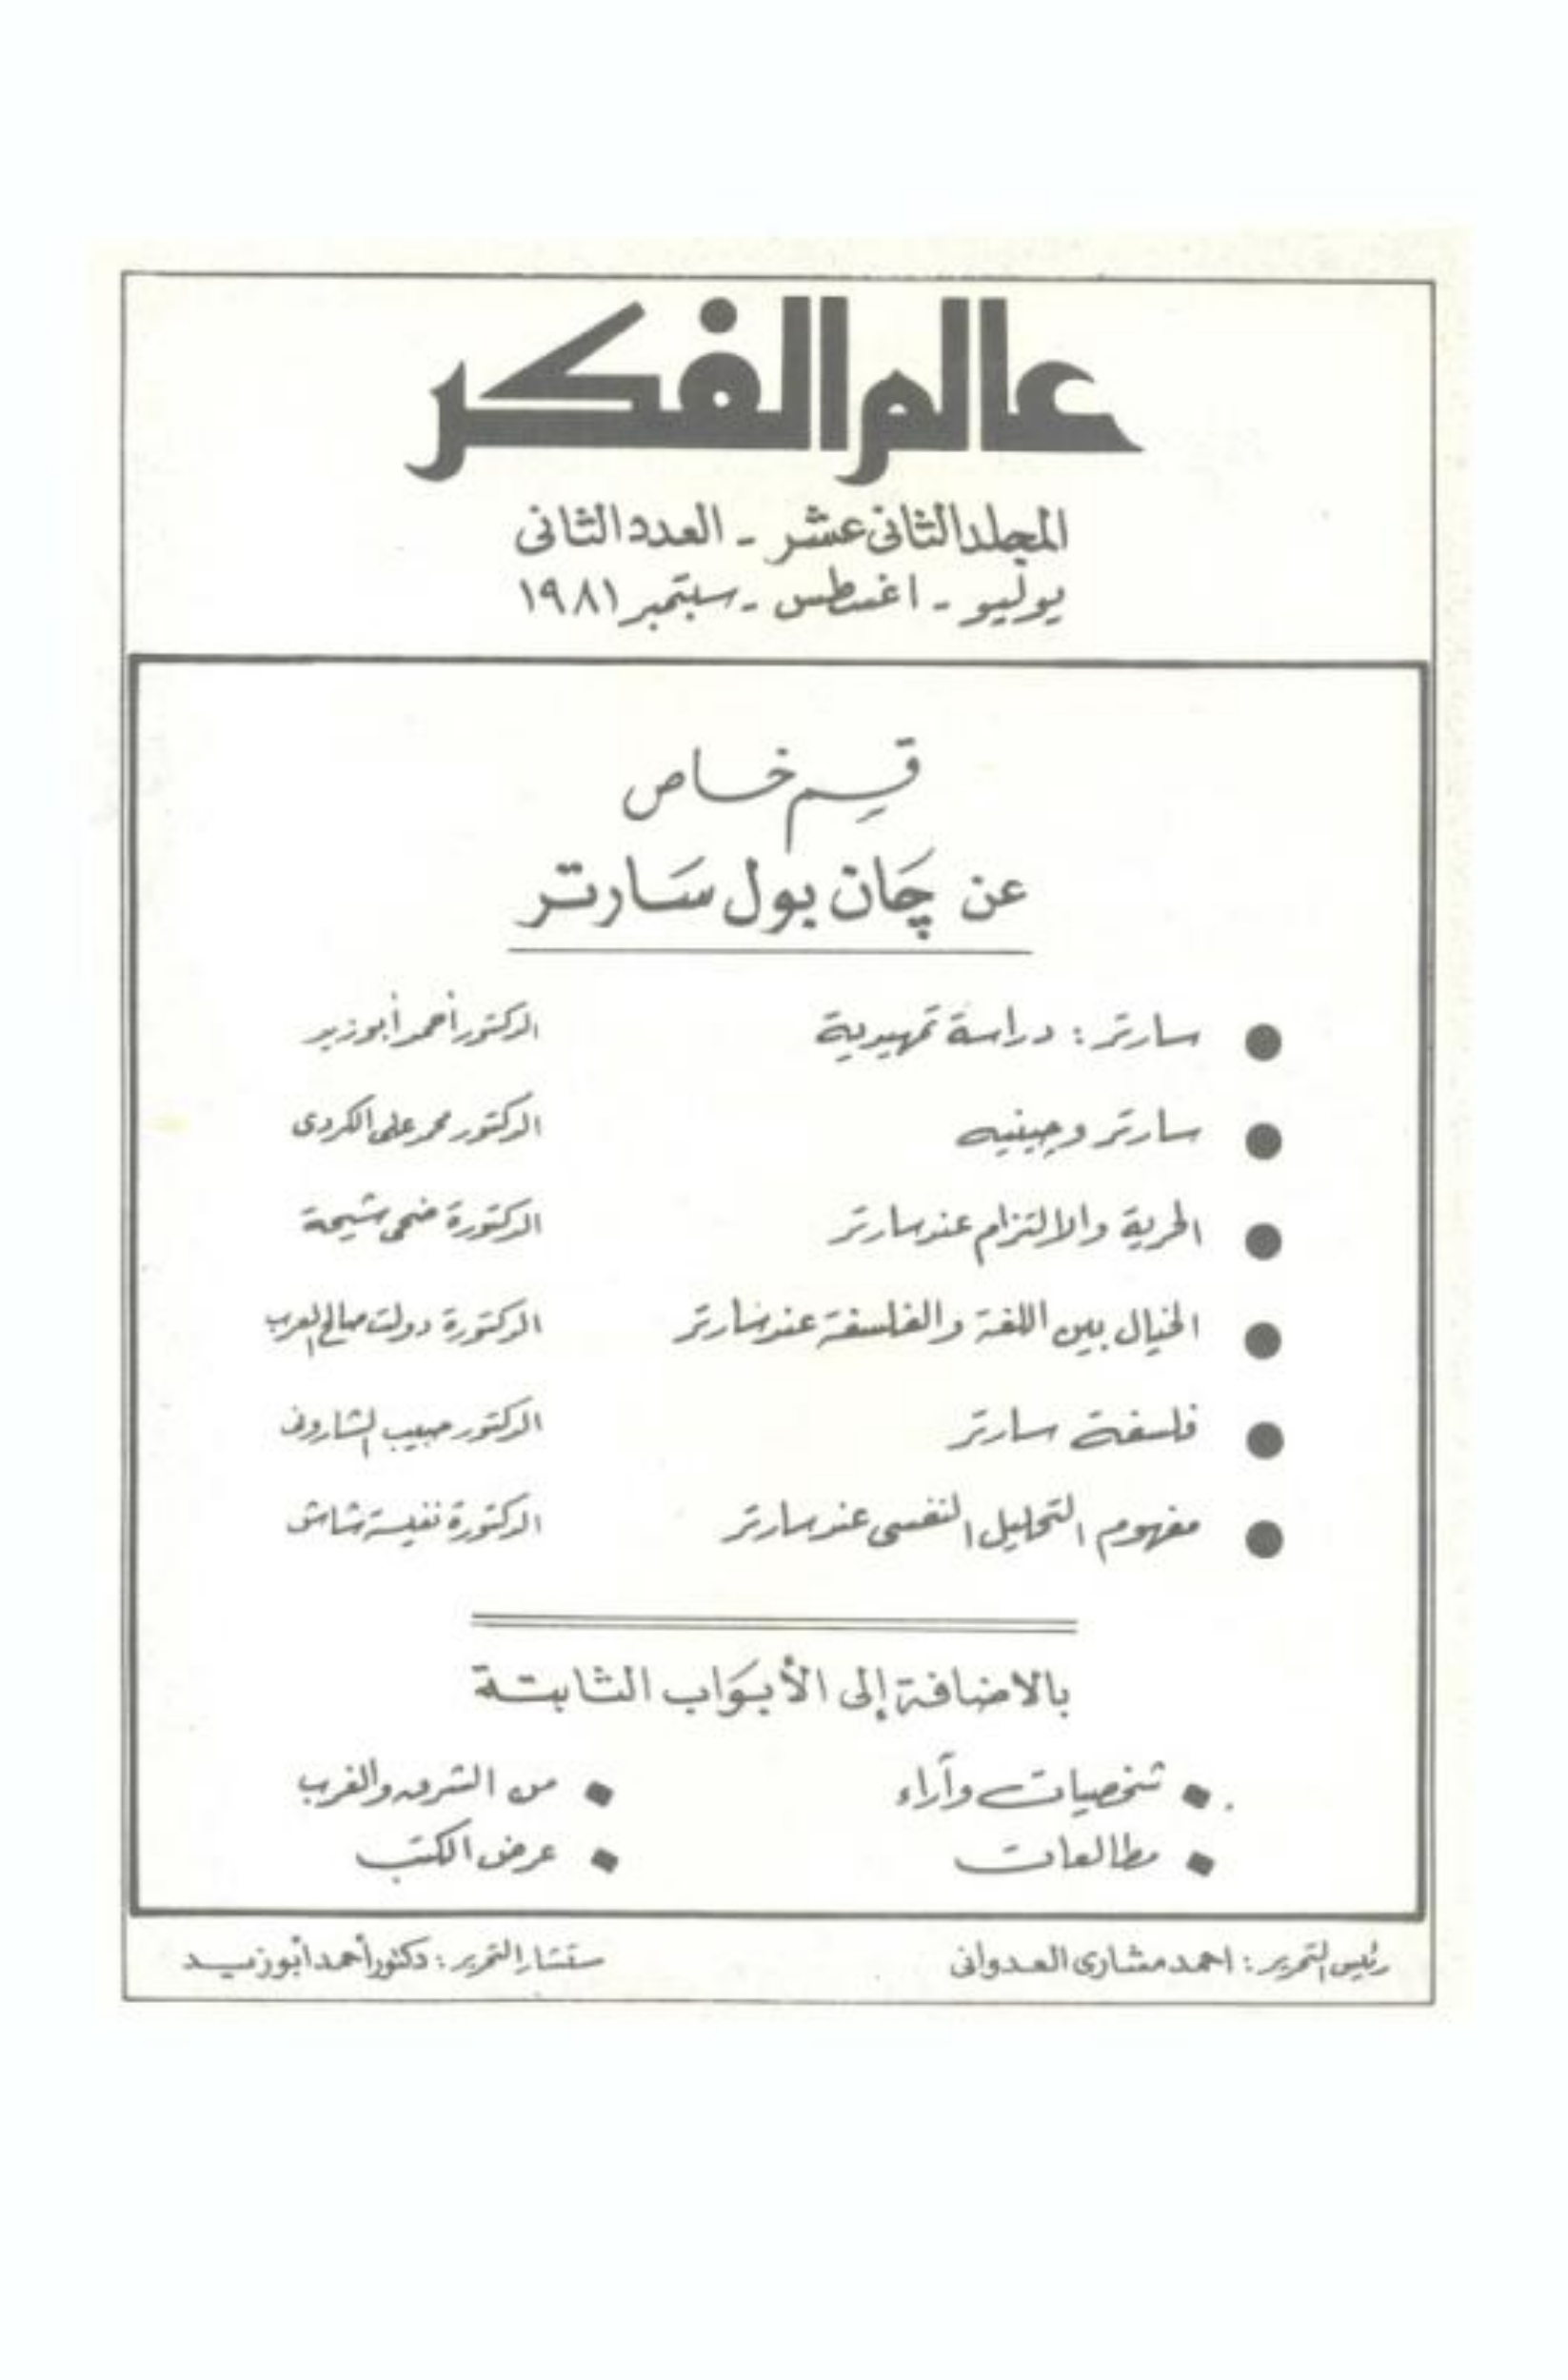 عالم الفكر
المجلد الثانى عشر - العدد الثانى
يوليو - اغسطس - سبتمبر ١٩٨١
قسم خاص
عن چان بول سارتر
● سارتر : دراسة تمهيدية الدكتور أحمد أبو زيد
● سارتر وچينيه الدكتور محمد على الكردى
● الحرية والالتزام عند سارتر الدكتورة ضحى شيحة
● الخيال بين اللغة والفلسفة عند سارتر الدكتورة دولت صالح العرب
● فلسفة سارتر الدكتور حبيب الشارونى
● مفهوم التحليل النفسى عند سارتر الدكتورة نفيسة شاش
بالاضافة إلى الأبواب الثابتة
شخصيات وآراء من الشرق والغرب
مطالعات عرض الكتب
رئيس التحرير : احمد مشارى العدوانى مستشار التحرير : دكتور أحمد أبو زيد